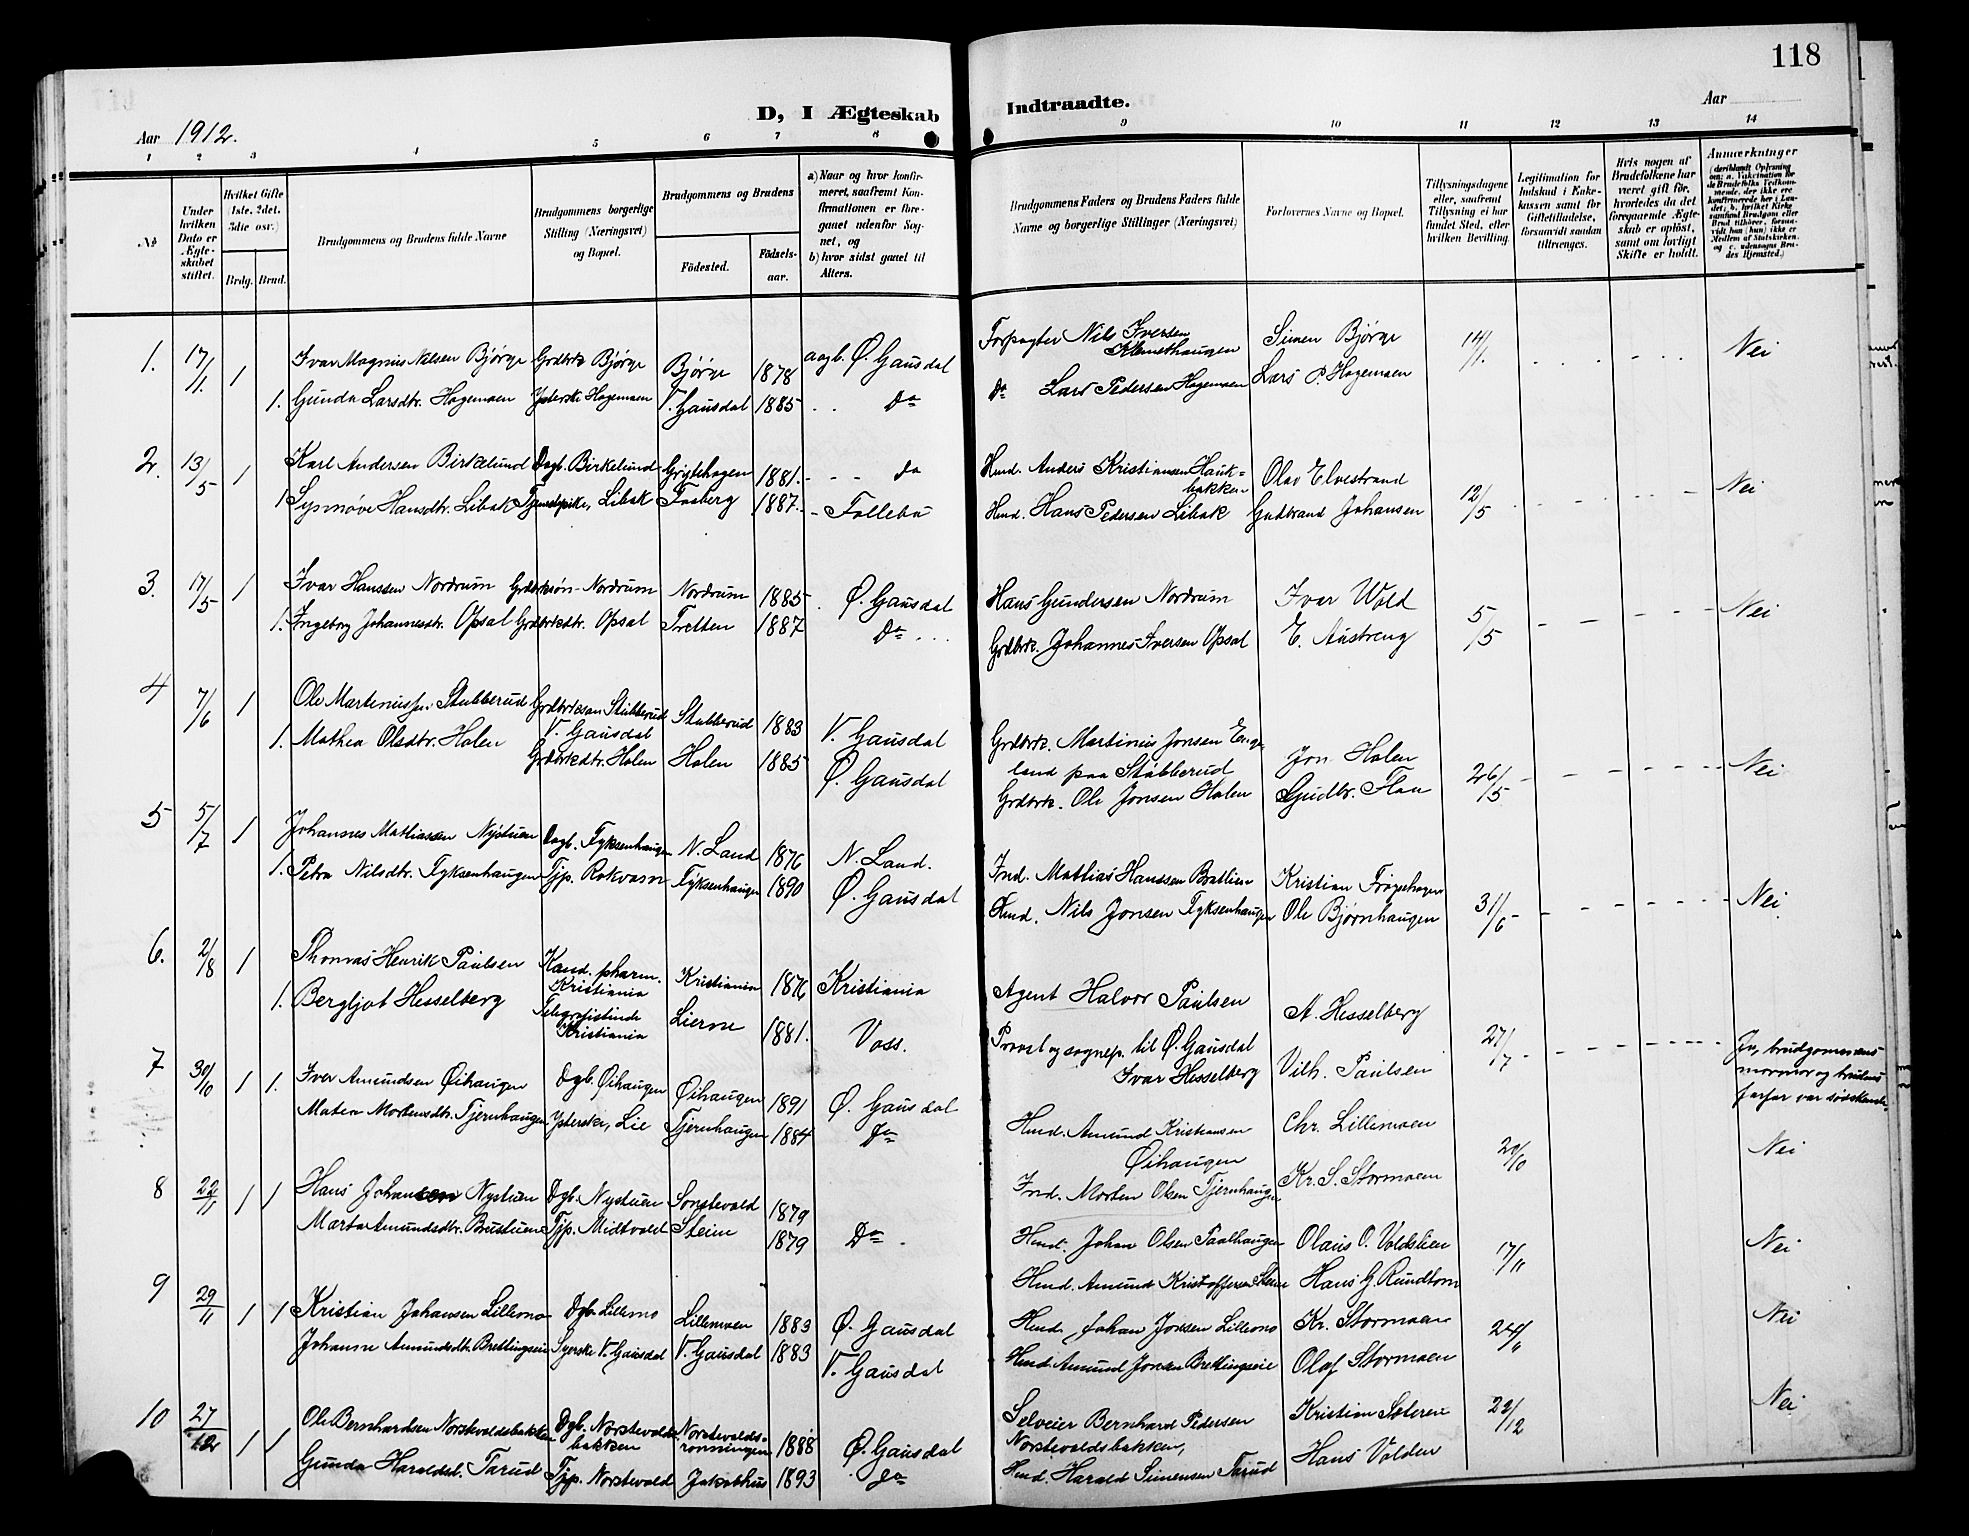 118
D, I Ægteskab Indtraadte.
Aar 1912.
Aar
1 2 3 4 5 6 7 8 9 10 11 12 13 14
No
Under hvilken Dato er Ægteskabet stiftet.
Hvilket Gifte (1ste, 2det, 3die osv.)
Brdg. Brud.
Brudgommens og Brudens fulde Navne
Brudgommens borgerlige Stilling (Næringsvei) og Bopæl.
Brudgommens og Brudens
Födested.
Födsels-aar.
a) Naar og hvor konfirmeret, saafremt Konfirmationen er foregaaet udenfor Sognet, og
b) hvor sidst gaaet til Alters.
Brudgommens Faders og Brudens Faders fulde Navne og borgerlige Stillinger (Næringsvei)
Forlovernes Navne og Bopæl.
Tillysningsdagene eller, saafremt Tillysning ei har fundet Sted, efter hvilken Bevilling.
Legitimation for Indskud i Enkekassen samt for Giftetilladelse, forsaavidt saadan tiltrænges.
Hvis nogen af Brudefolkene har været gift för, hvorledes da det foregaaende Ægteskab er oplöst, samt om lovligt Skifte er holdt.
Anmærkninger
1. 17/1. 1 Ivar Magnus Nilsen Bjørge Grdbrk Bjørge Bjørge 1878 aagb. Ø. Gausdal Forpagter Nils Iversen Klemethaugen Simen Bjørge 14/1. Nei
1. Gunda Larsdtr. Hagemoen Ysterske Hagemoen V. Gausdal 1885 Do Do Lars Pedersen Hagemoen Lars P. Hagemoen
2. 13/5 1 Karl Andersen Birkelund Dagb. Birkelund 1881. do Hmd. Anders Kristiansen Haukbakken Olav Elvestrand 12/5 Nei
1 Synnøve Hansdtr. Libak Tjenestepike, Libak Faaberg 1887. Follebu Hmd. Hans Pedersen Libak Gudbrand Johansen
3. 17/5 1 Ivar Hanssen Nordrum Grdbrksøn Nordrum Nordrum 1885 Ø. Gausdal Hans Gundersen Nordrum Ivar Wold 5/5 Nei
1. Ingeborg Johannesdtr. Opsal Grdbrkdtr. Opsal Tretten 1887 Do Grdbrk. Johannes Iversen Opsal E. Austreng
4 7/6 1 Ole Martiniussen Stubberud Grdbrksøn Stubberud V. Gausdal Stubberud 1883 V. Gausdal Grdbrk. Martinius Jonsen Engeland paa Stubberud Jon Holen 26/5 Nei
1. Mathea Olsdtr. Holen Grdbrkdtr. Holen Holen 1885 Ø. Gausdal Grdbrk. Ole Jonsen Holen Gudbr. Flaa
5 5/7 1 Johannes Mathiassen Nystuen Dagb. Fyksenhaugen N. Land 1876 N. Land. Ind. Mathias Hanssen Bratlien Kristian 31/6 Nei
1. Petra Nilsdtr. Fyksenhaugen Tjp. Rokvam Fyksenhaugen 1890 Ø. Gausdal Hmd. Nils Jonsen Fyksenhaugen Ole Bjørnhaugen
6. 2/8 1 Thomas Henrik Paulsen Kand. pharm. Kristiania Kristiania 1876 Kristiania Agent Halvor Paulsen A. Hesselberg 27/7 Ja, brudgommens mormor og brudens farfar var sødskende.
1. Bergljot Hesselberg Telegrafistinde Kristiania Lierne 1881. Voss. Provst og sognep. til Ø. Gausdal Ivar Hesselberg Vilh. Paulsen
7 30/10 1 1. Iver Amundsen Øihaugen Dgb. Øihaugen Øihaugen 1891 Ø. Gausdal Hmd. Amund Kristiansen Øihaugen Chr. Lillemoen 20/10 Nei
Matea Mortensdtr. Tjernhaugen Ysterske, Lie Tjernhaugen 1884 Do Ind. Morten Olsen Tjernhaugen Kr. S. Stormoen
8 22/11 1 1 Hans Johansen Nystuen Dgb. Nystuen Sonstevold 1879 Hmd. Johan Olsen Paalhaugen Olaus O. Voldslien 17/11 Nei
Marta Amundsdtr. Brustuen Tjp. Midtvold Steine 1879 Do Hmd. Amund Kristoffersen Steine Hans G. Rundtom
9 29/11 1 1 Kristian Johansen Lillemo Dgb. Lillemo Lillemoen 1883 Ø. Gausdal Hmd. Johan Jonsen Lillemo Kr. Stormoen 24/11 Nei
Johanne Amundsdtr. Brettingseie Syerske V. Gausdal V. Gausdal 1883 V. Gausdal Hmd. Amund Jonsen Brettingseie Olaf Stormoen
10 27/12 1 1 Ole Bernhardsen Norstevoldsbakken Dgb. Norstevoldsbakken Norstevoldsrønningen 1888 Ø. Gausdal Selveier Bernhard Pedersen Norstevoldsbakken, Kristian Sæteren 22/12 Nei
Gunda Haraldsd. Tarud Tjp. Norstevold Jakobhus 1893 do Hmd. Harald Simensen Tarud Hans Volden